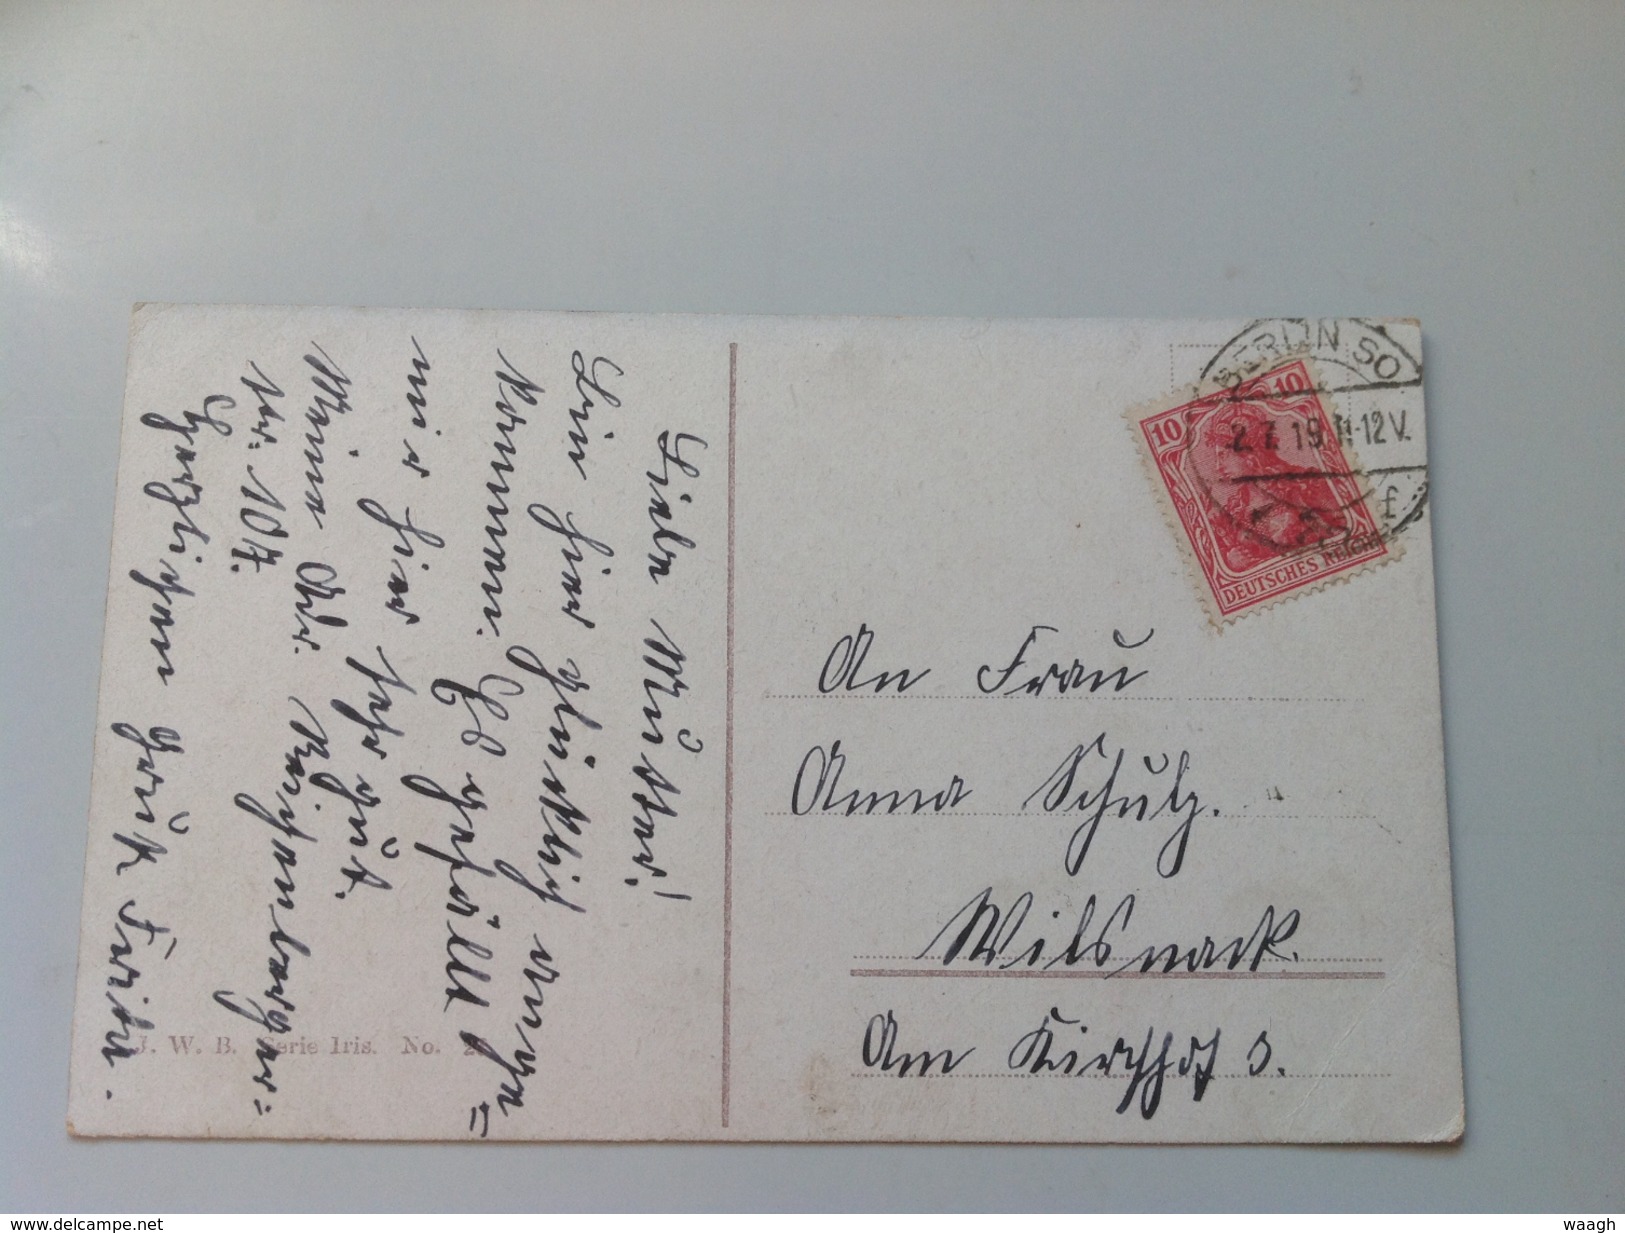 Liebe Mutter!
Bin hier glücklich ange=
kommen. Es gefällt
mir hier sehr gut.
Meine Adr. Reichenberger=
str. 104.
Herzlichen Gruß
J. W. B. Serie Iris. No.
BERLIN SO
2.7.19 11-12V.
f
10 10
DEUTSCHES REICH
An Frau
Anna Schulz.
Wilsnack.
Am Kirchhof 3.
www.delcampe.net
waagh